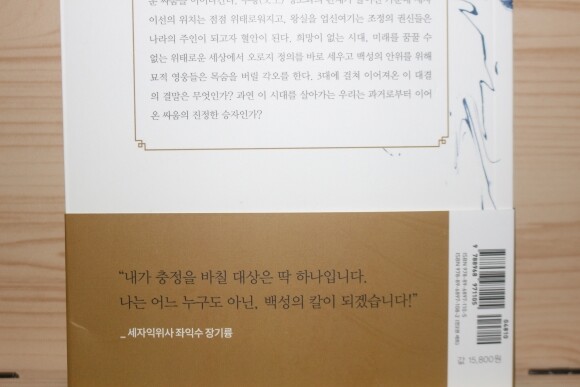 이선의 위치는 점점 위태로워지고, 왕실을 업신여기는 조정의 권신들은
나라의 주인이 되고자 혈안이 된다. 희망이 없는 시대, 미래를 꿈꿀 수
없는 위태로운 세상에서 오로지 정의를 바로 세우고 백성의 안위를 위해
묘적 영웅들은 목숨을 버릴 각오를 한다. 3대에 걸쳐 이어져온 이 대결
의 결말은 무엇인가? 과연 이 시대를 살아가는 우리는 과거로부터 이어
온 싸움의 진정한 승자인가?
“내가 충정을 바칠 대상은 딱 하나입니다.
나는 어느 누구도 아닌, 백성의 칼이 되겠습니다!”
_세자익위사 좌익수 장기륭
9 788968 971105
04810
값 15,800원